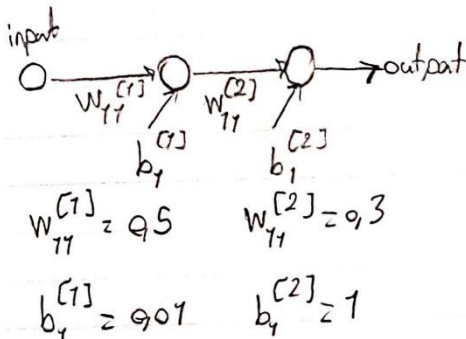 input
output
w₁₁^[1] w₁₁^[2]
b₁^[1] b₁^[2]
w₁₁^[1] = 0,5 w₁₁^[2] = 0,3
b₁^[1] = 0,01 b₁^[2] = 1